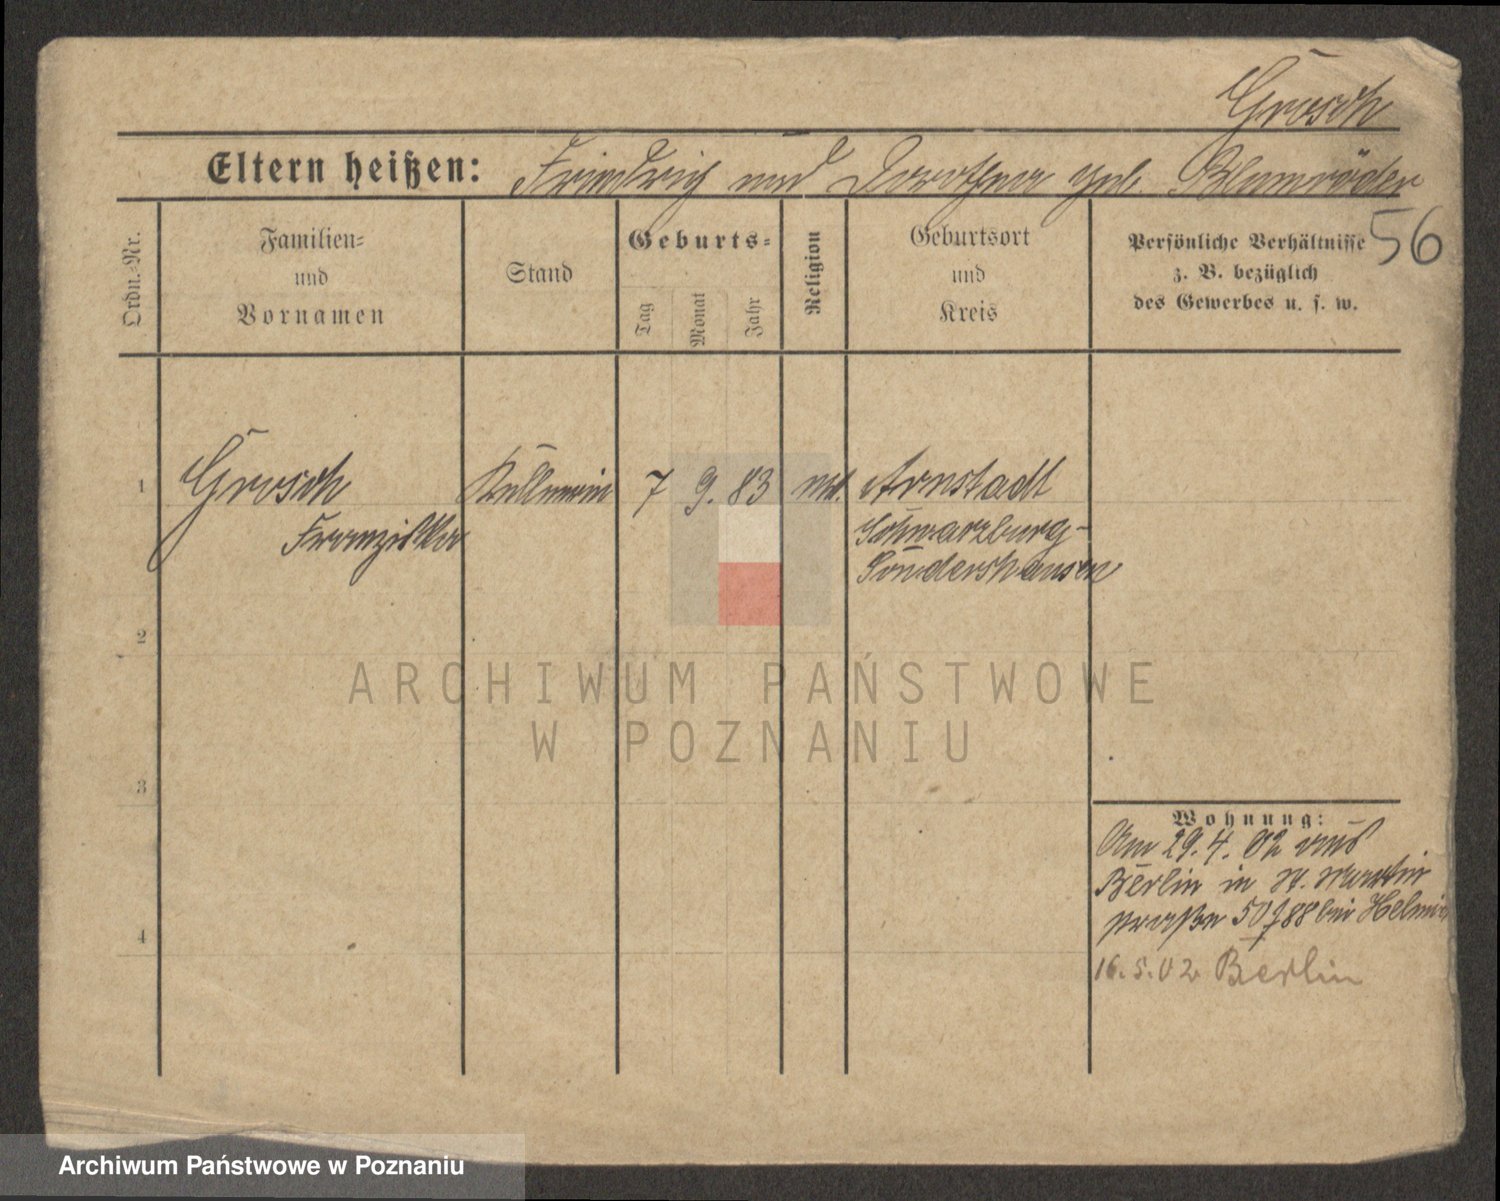 Grosch
Eltern heißen: Friedrich und Dorothea geb. Blumröder
56
Ordn.-Nr.
Familien-
und
Vornamen
Stand
Geburts-
Tag
Monat
Jahr
Religion
Geburtsort
und
Kreis
Persönliche Verhältnisse
z. B. bezüglich
des Gewerbes u. s. w.
1 Grosch Kellnerin 7 9. 83 Arnstadt
Franziska Schwarzburg-
Sondershausen
2
3
4
ARCHIWUM PAŃSTWOWE
W POZNANIU
Wohnung:
Am 29.4.02 aus
Berlin in St. Martin
straße 50/88 bei
16.5.02 Berlin
Archiwum Państwowe w Poznaniu